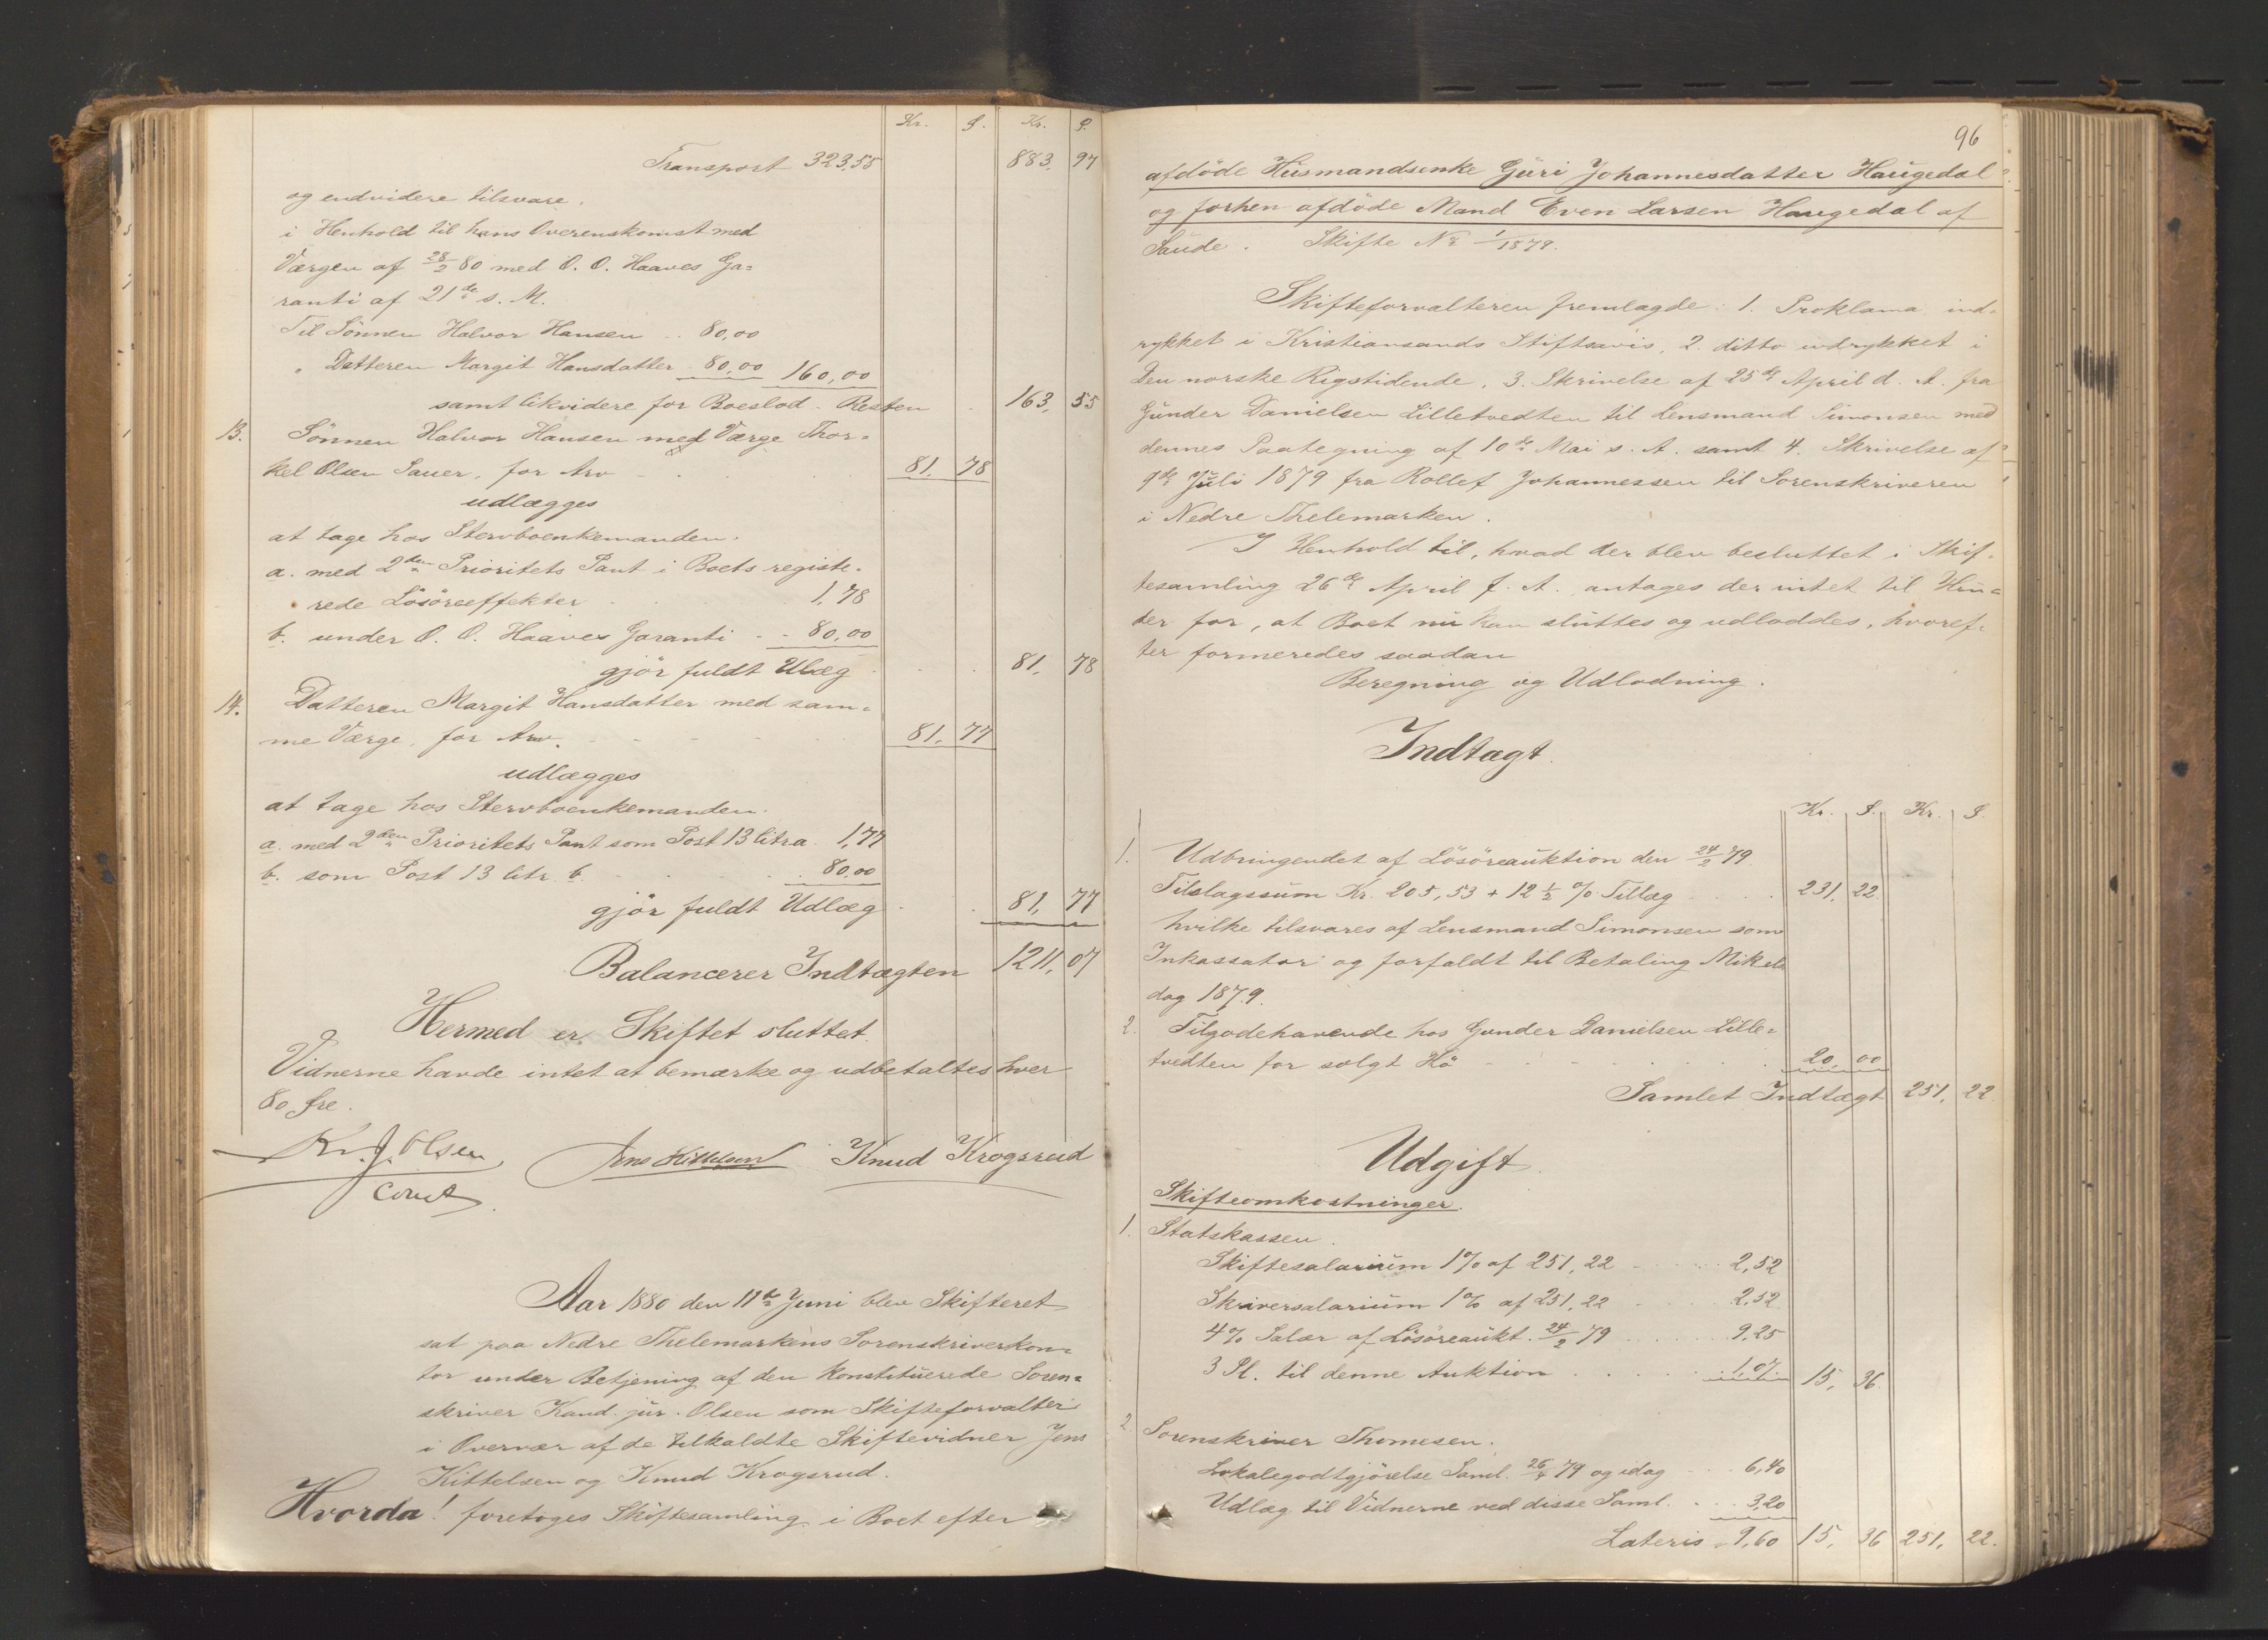 Kr. Ø. Kr. Ø.
Transport 323,55 883, 97
og endvidere tilsvare.
i Henhold til hans Overenskomst med
Værgen af 28/2 80 med O. O. Haaves Ga=
ranti af 21de s. M.
Til Sönnen Halvor Hansen .. 80,00
" Datteren Margit Hansdatter 80,00 160,00
samt likvidere for Boeslod. Resten . 163, 55
13. Sönnen Halvor Hansen med Værge Thor=
kel Olsen Sauer, for Arv 81, 78
udlægges
at tage hos Stervboenkemanden.
a. med 2den Prioritets Pant i Boets registe=
rede Lösöreeffekter 1,78
b. under O. O. Haaves Garanti - - 80,00
gjör fuldt Ulæg 81, 78
14. Datteren Margit Hansdatter med sam=
me Værge, for Arv. 81, 77
udlægges
at tage hos Stervboenkemanden.
a. med 2den Prioritets Pant som Post 13 litra. 1,77
b. som Post 13 litr. b. 80,00
gjör fuldt Udlæg 81, 77
Balancerer Indtægten 1211, 07
Hermed er Skiftet sluttet.
Vidnerne havde intet at bemærke og udbetaltes hver
80 Øre.
Kr. J. Olsen Jens Kittelsen Knud Krogsrud
const.
Aar 1880 den 11te Juni blev Skifteret
sat paa Nedre Thelemarkens Sorenskriverkon=
tor under Betjening af den konstituerede Soren=
skriver Kand. jur. Olsen som Skifteforvalter
i Overvær af de tilkaldte Skiftevidner Jens
Kittelsen og Knud Krogsrud.
Hvorda! foretoges Skiftesamling i Boet efter
96
afdöde Husmandsenke Guri Johannesdatter Haugedal
og forhen afdöde Mand Even Larsen Haugedal af
Saude. Skifte No 1/1879.
Skifteforvalteren fremlagde: 1. Proklama ind=
rykket i Kristiansands Stiftsavis, 2. ditto indrykket i
Den norske Rigstidende, 3. Skrivelse af 25de April d. A. fra
Gunder Danielsen Lilletvedten til Lensmand Simonsen med
dennes Paategning af 10de Mai s. A. samt 4. Skrivelse af
9de Juli 1879 fra Rollef Johannessen til Sorenskriveren
i Nedre Thelemarken.
I Henhold til, hvad der blev besluttet i Skif=
tesamling 26de April f. A. antages der intet til Hin=
der for, at Boet nu kan sluttes og udloddes, hvoref=
ter formeredes saadan
Beregning og Udlodning.
Indtægt.
Kr. Ø. Kr. Ø.
1. Udbringendet af Lösöreauktion den 24/2 79.
Tilslagssum Kr. 205,53 + 12 1/2 % Tillæg 231, 22.
hvilke tilsvares af Lensmand Simonsen som
Inkassator og forfaldt til Betaling Mikels
dag 1879.
2. Tilgodehavende hos Gunder Danielsen Lille=
tvedten for solgt Hö 20, 00
Samlet Indtægt 251, 22.
Udgift.
Skifteomkostninger.
1. Statskassen.
Skiftesalarium 1% af 251,22 2,52
Skriversalarium 1% af 251,22 2,52
4% Salær af Lösöreaukt. 24/2 79 9,25
3 Pl. til denne Auktion 1,07 15, 36.
2 Sorenskriver Thomesen.
Lokalegodtgjörelse Saml. 26/4 79 og idag 6,40
Udlæg til Vidnerne ved disse Saml. 3,20
Lateris 9,60 15, 36 251, 22.